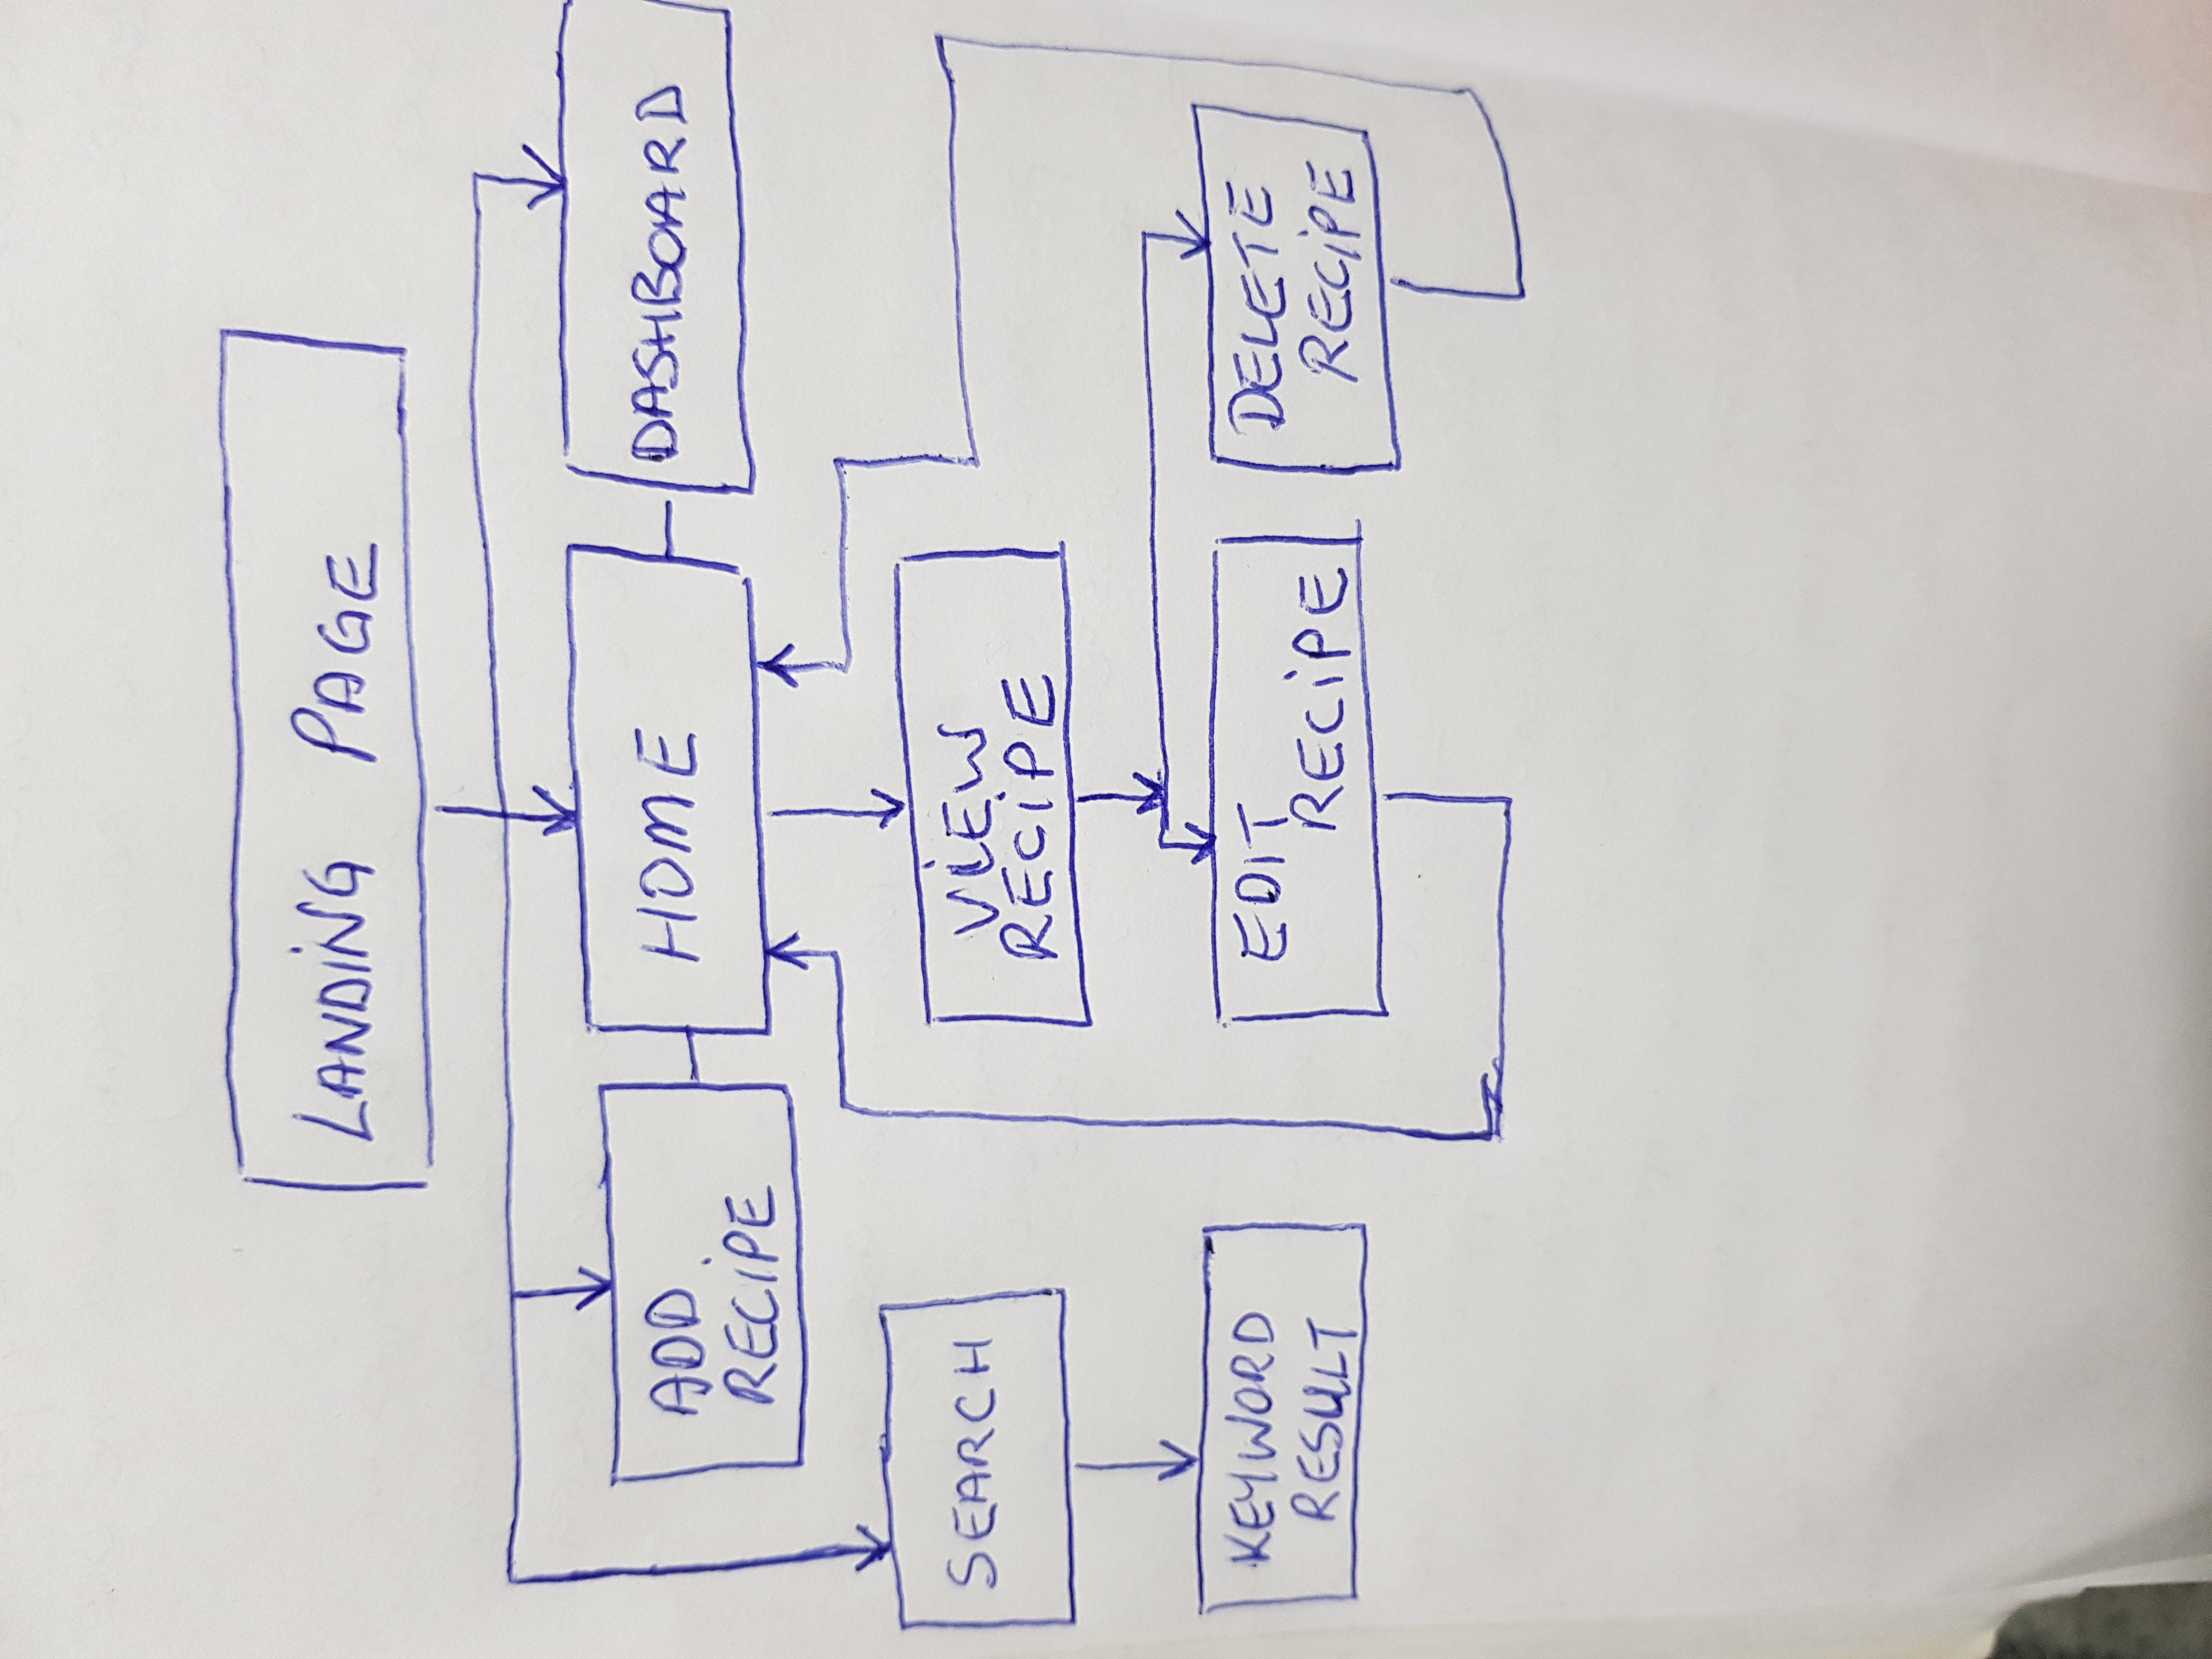 LANDING PAGE
ADD
RECIPE
HOME
DASHBOARD
SEARCH
VIEW
RECIPE
KEYWORD
RESULT
EDIT
RECIPE
DELETE
RECIPE